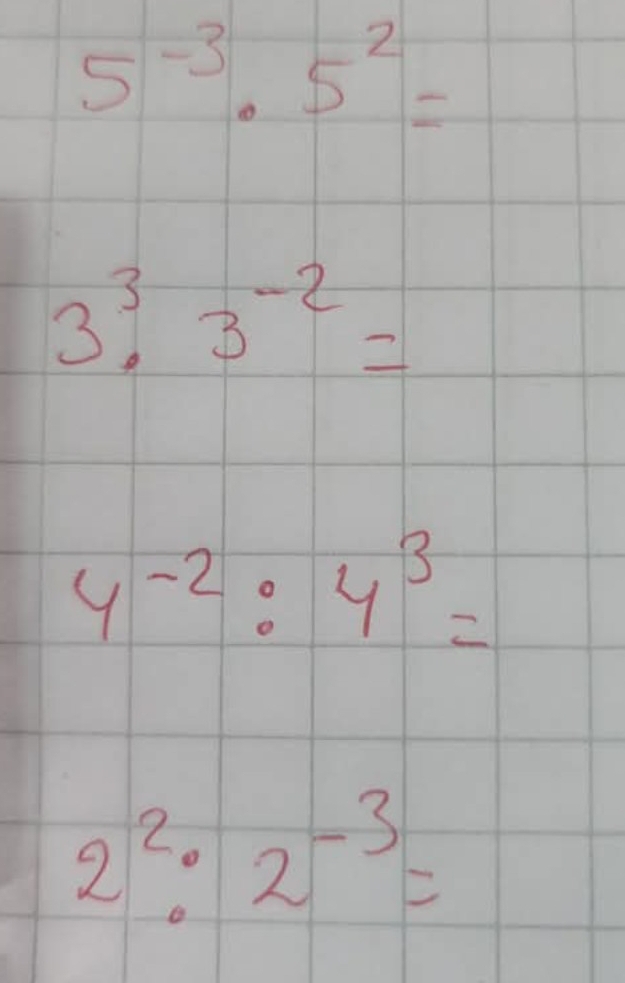 5⁻³ · 5² =
3³ · 3⁻² =
4⁻² : 4³ =
2² : 2⁻³ =